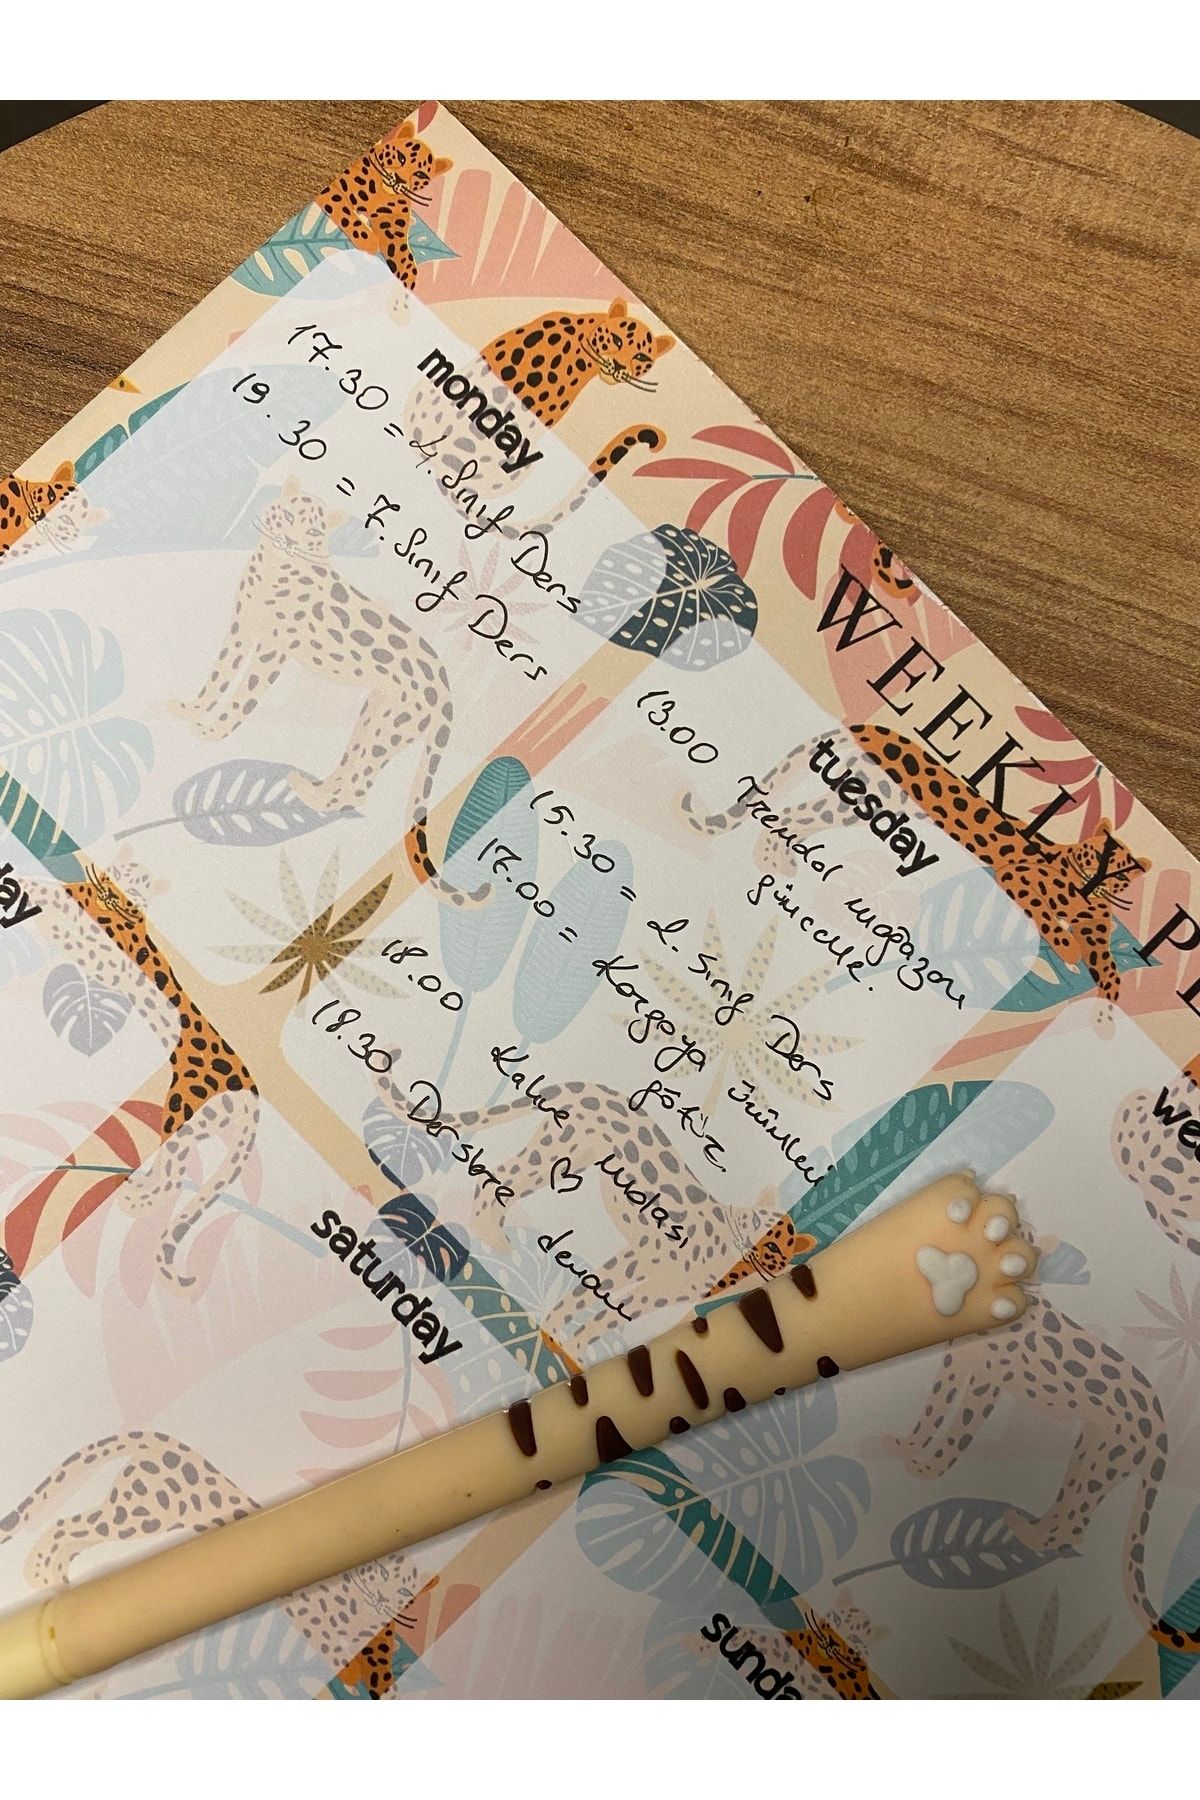 WEEKLY P
monday
17.30 = 4. Sınıf Ders
19.30 = 7. Sınıf Ders
tuesday
13.00 Trendol mağazanı
güncelle.
15.30 = 2. Sınıf Ders
17.00 = Kargoya ürünleri
götür.
18.00 Kahve molası
♡
18.30 Derslere devam
we
day
saturday
sunda